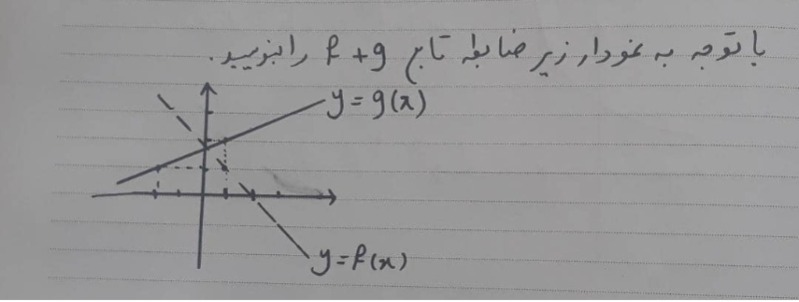 با توجه به نمودار زیر ضابطه تابع f+g را بنویسید.
y=g(x)
y=f(x)